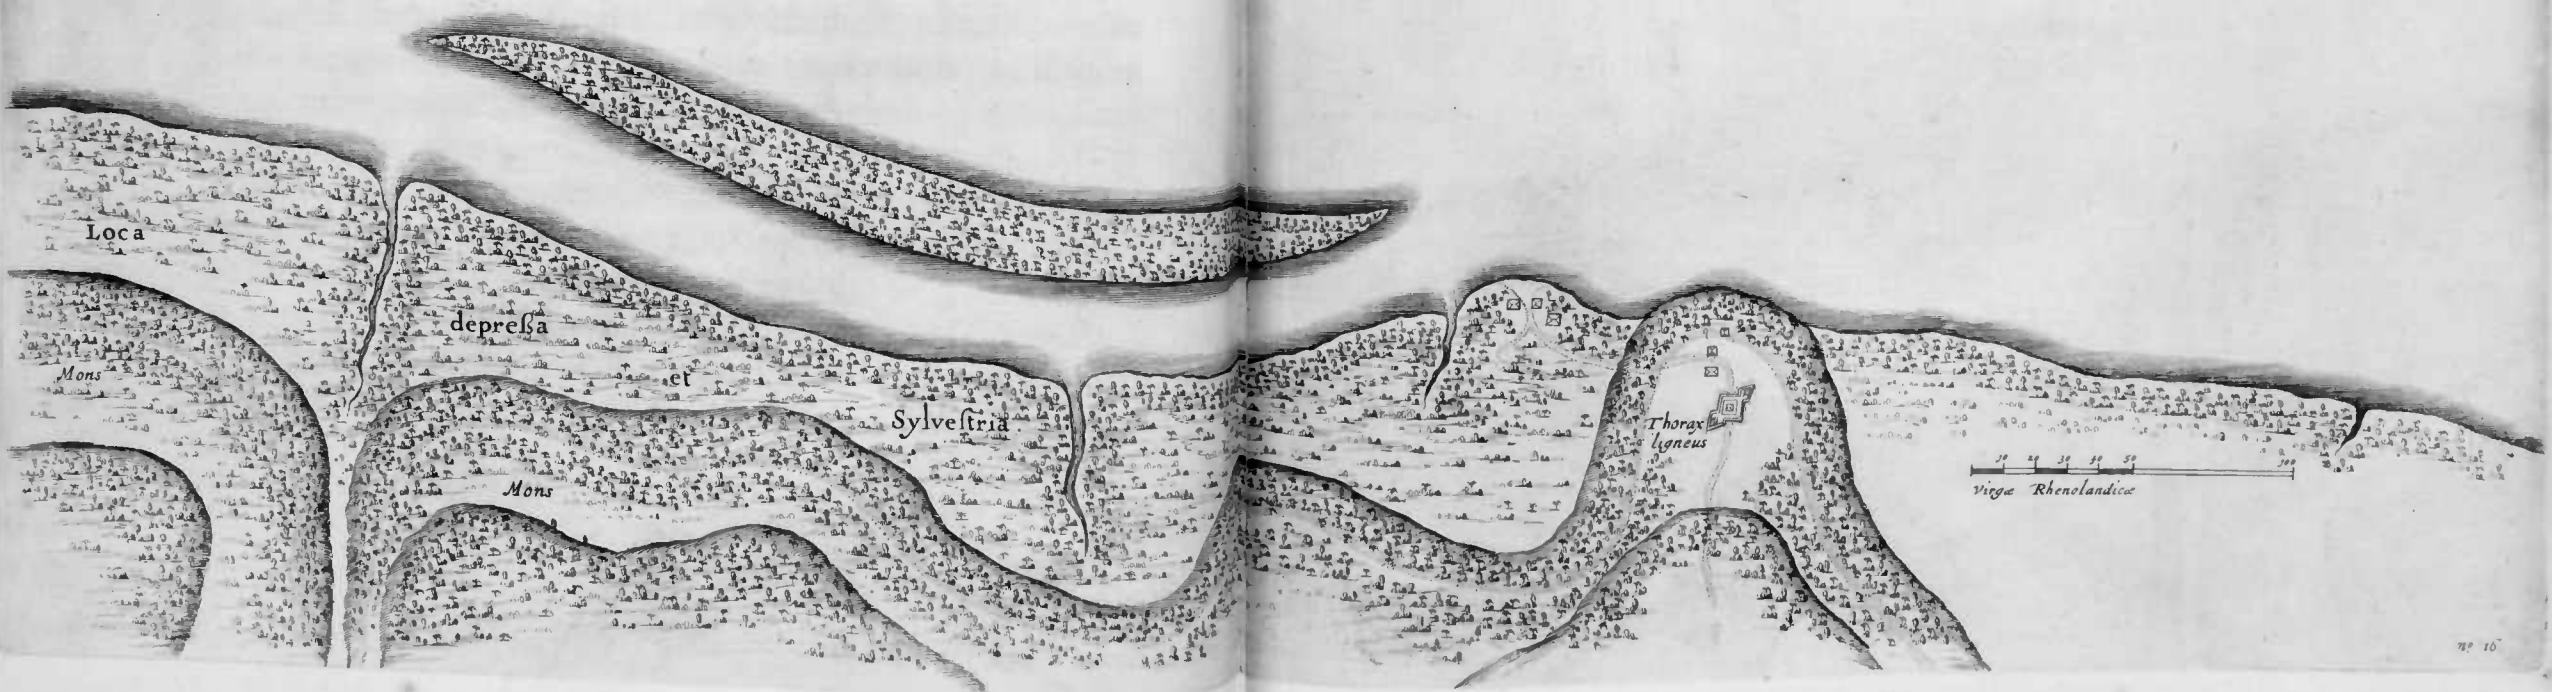 Loca
depreßa
et
Sylveſtria
Mons
Mons
Thorax
ligneus
10 20 30 40 50 100
Virgæ Rhenolandicæ
nº 16